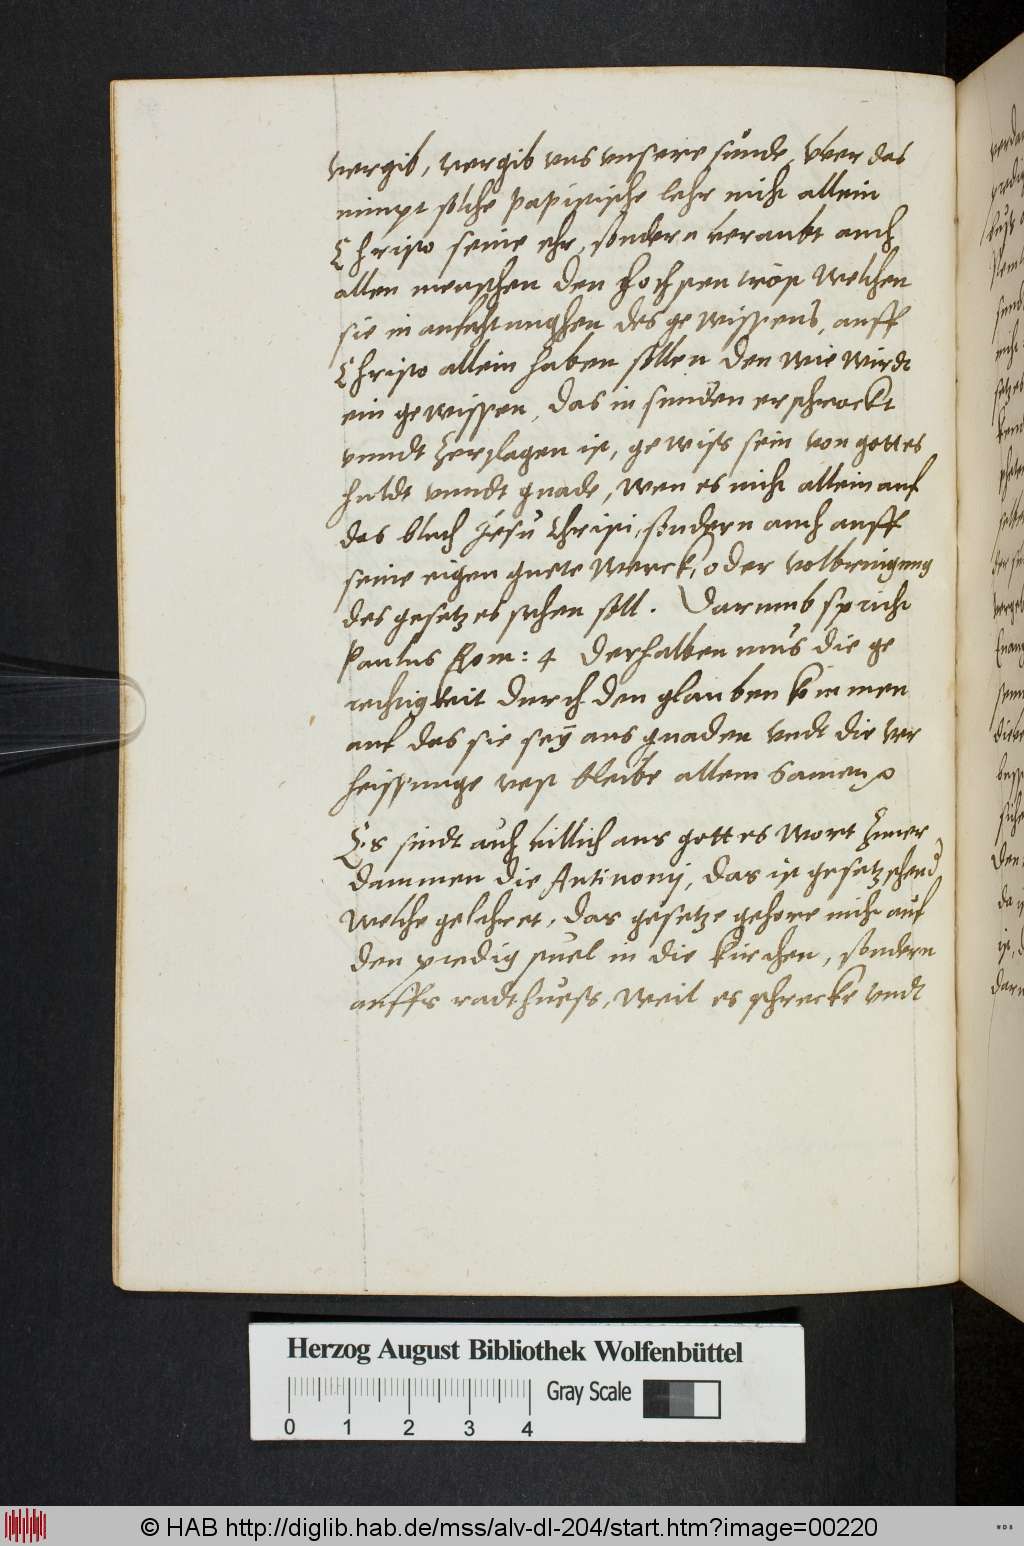 vergib, vergib vns vnsere sünde, Vber das
nimpt solche papistische lehr nicht allein
Christo seine ehr, sondern beraubt auch
allen menschen den hochsten trost Welchen
sie in anfechtunghen des gewissens, auff
Christo allein haben sollen den wie wirdt
ein gewissen, das in sunden erschrockt
vnndt zerslagen ist, gewiss sein von gottes
huldt vnndt gnade, wen es nicht allein auf
das bluth Jesu Christi, sondern auch auff
seine eigen guete Werck, oder volbringung
des gesetzes sehen soll. Darumb spricht
Paulus Rom: 4 Derhalben mus die ge
rechtigkeit durch den glauben kommen
auf das sie seÿ aus gnaden vndt die ver
heissunge vest bleibe allem Samen
Es sindt auch billich aus gottes wort zuuer
dammen die Antinomi, das ist gesetzschend
Welche gelehret, das gesetze gehore nicht auf
den predig stuel in die kirchen, sondern
auffs radthuess, Weil es schrecke vndt
Herzog August Bibliothek Wolfenbüttel
Gray Scale
0 1 2 3 4
© HAB http://diglib.hab.de/mss/alv-dl-204/start.htm?image=00220